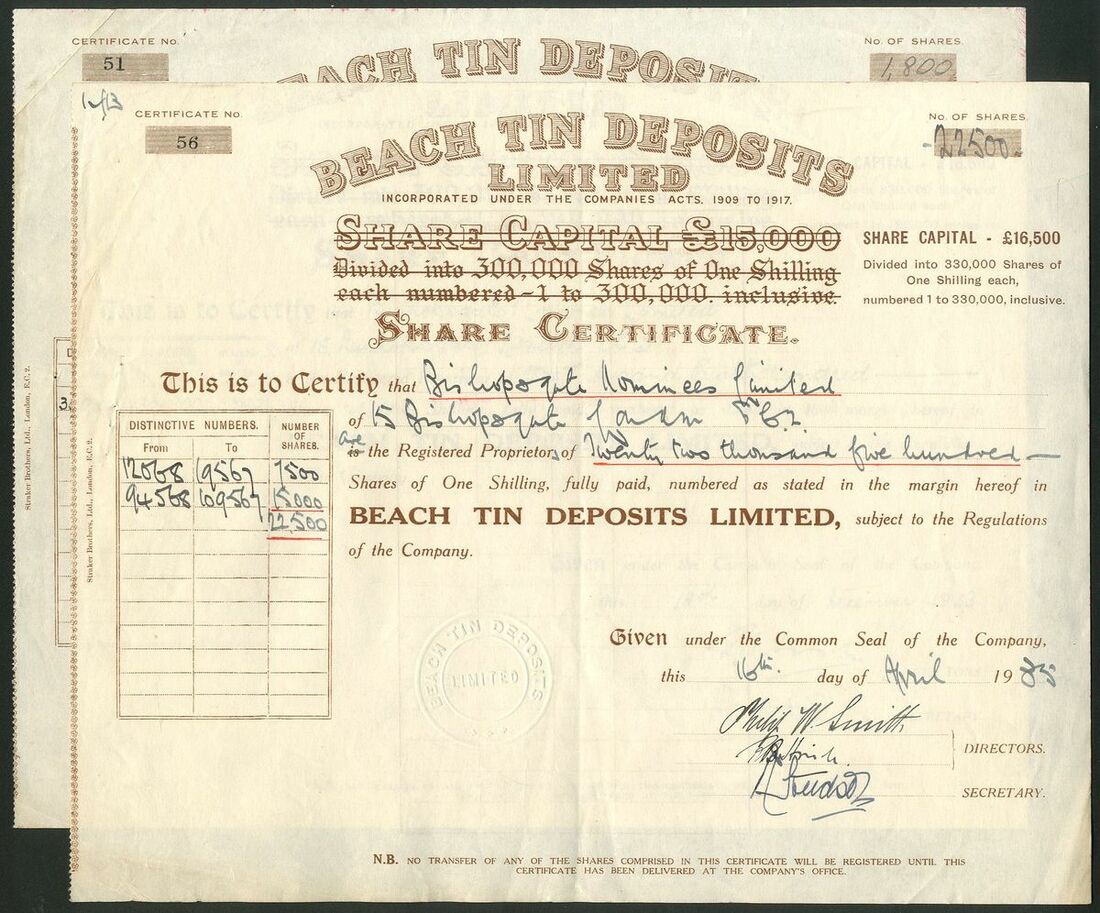 CERTIFICATE No.
51
No. OF SHARES.
1,800
BEACH TIN DEPOSITS
CERTIFICATE No.
56
No. OF SHARES.
-22500-
BEACH TIN DEPOSITS
LIMITED
INCORPORATED UNDER THE COMPANIES ACTS. 1909 TO 1917.
SHARE CAPITAL £15,000
Divided into 300,000 Shares of One Shilling
each numbered - 1 to 300,000. inclusive.
SHARE CAPITAL - £16,500
Divided into 330,000 Shares of
One Shilling each,
numbered 1 to 330,000, inclusive.
SHARE CERTIFICATE.
This is to Certify that Bishopsgate Nominees Limited
of 15 Bishopsgate London EC2.
are is the Registered Proprietors of Twenty two thousand five hundred —
Shares of One Shilling, fully paid, numbered as stated in the margin hereof in
BEACH TIN DEPOSITS LIMITED, subject to the Regulations
of the Company.
DISTINCTIVE NUMBERS. NUMBER OF SHARES.
From To
12068 19567 7500
94568 109567 15000
22,500
BEACH TIN DEPOSITS
LIMITED
Given under the Common Seal of the Company,
this 16th day of April 1935
Philip W. Smith
DIRECTORS.
SECRETARY.
N.B. NO TRANSFER OF ANY OF THE SHARES COMPRISED IN THIS CERTIFICATE WILL BE REGISTERED UNTIL THIS
CERTIFICATE HAS BEEN DELIVERED AT THE COMPANY'S OFFICE.
Straker Brothers, Ltd., London, E.C. 2.
Straker Brothers, Ltd., London, E.C. 2.